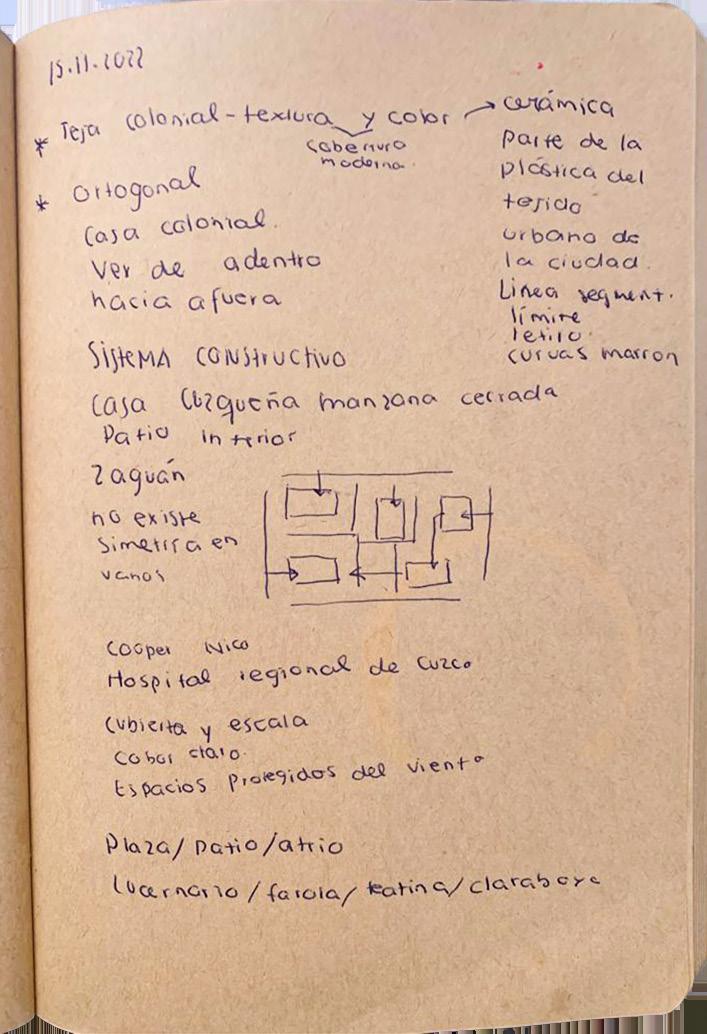 15.11.2022
* Teja colonial - textura y color → cerámica
cobertura
moderna.
parte de la
plástica del
tejido
urbano de
la ciudad.
Linea segment.
límite
retiro.
curvas marron
* ortogonal
Casa colonial.
Ver de adentro
hacia afuera
SisteMA constructivo
Casa Cuzqueña manzana cerrada
Patio interior
Zaguán
no existe
simetría en
vanos
Cooper Nico
Hospital regional de Cuzco
Cubierta y escala
claro.
Espacios protegidos del viento
Plaza/patio/atrio
Lucernario/farola/teatina/claraboya